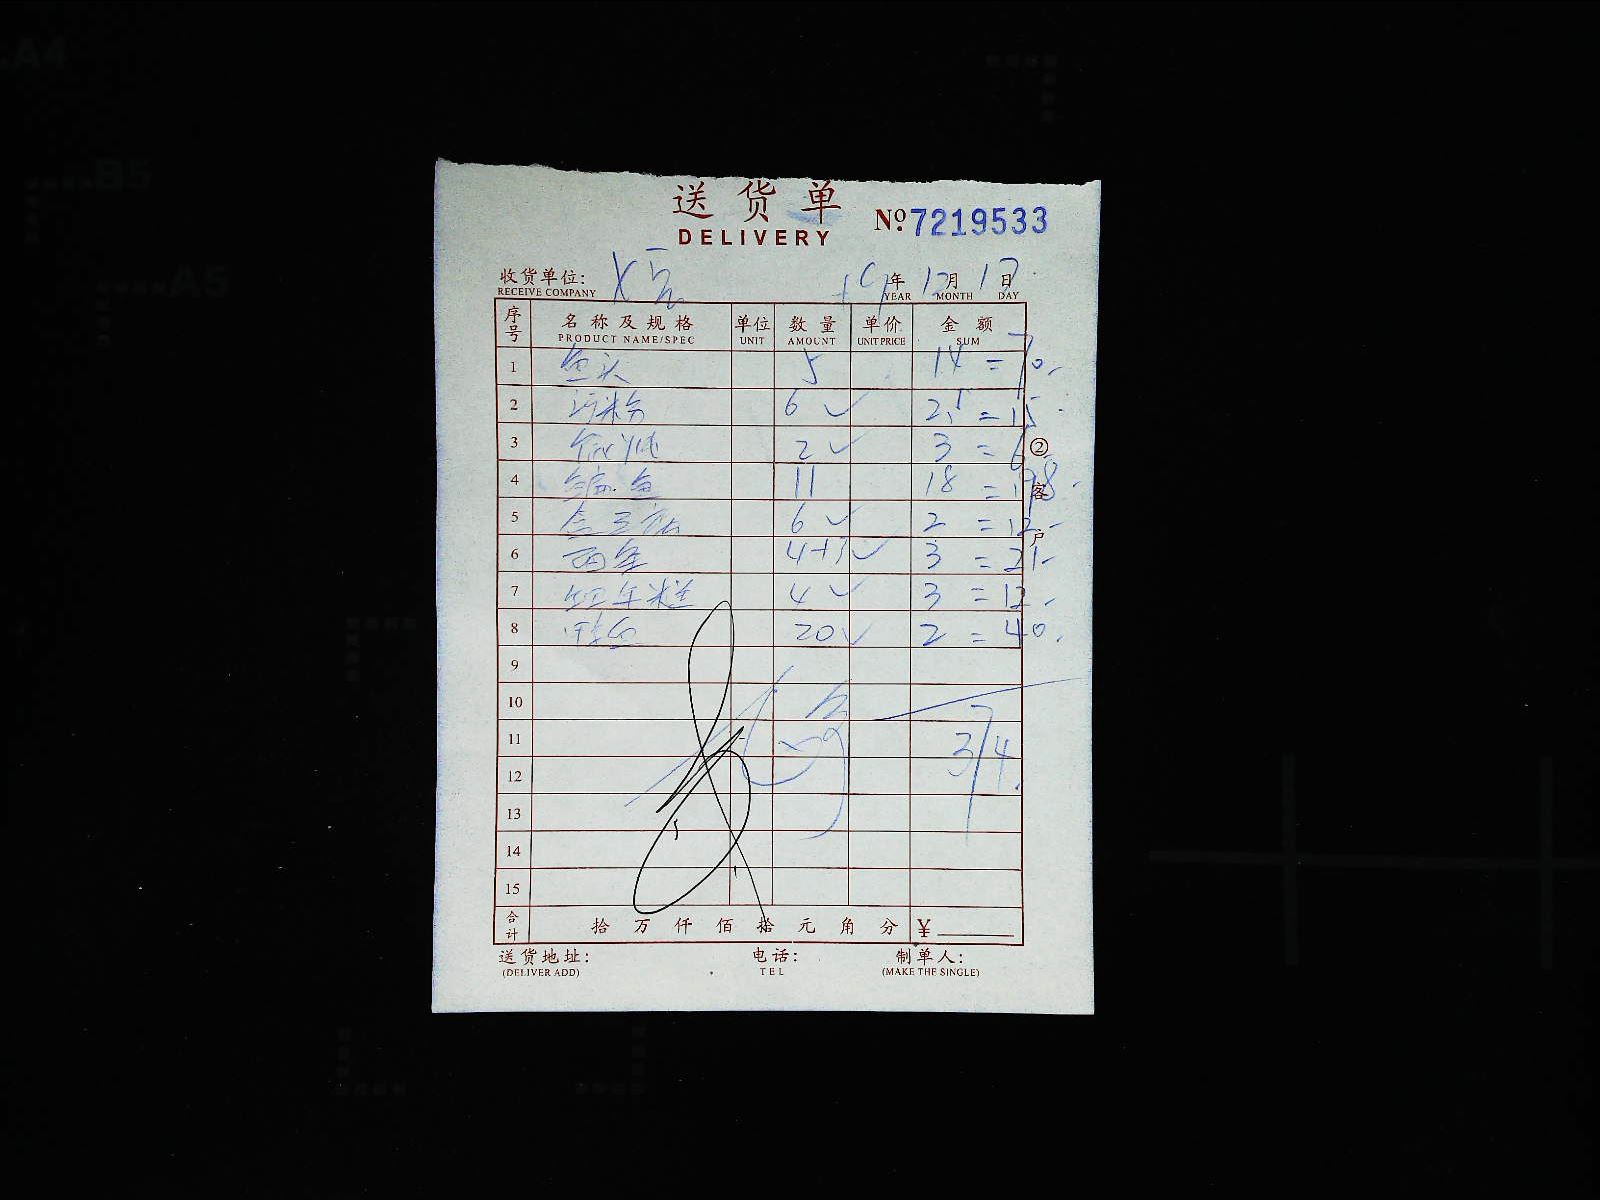 送货单
DELIVERY
№ 7219533
收货单位: 年 12月 17日
RECEIVE COMPANY YEAR MONTH DAY
序号 名称及规格 单位 数量 单价 金额
PRODUCT NAME/SPEC UNIT AMOUNT UNIT PRICE SUM
1 鱼头 5 14 = 70.-
2 粉 6 ✓ 2.5 = 15.-
3 2 ✓ 3 = 6
4 鱼 11 18 = 198.-
5 6 ✓ 2 = 12.-
6 4+3 ✓ 3 = 21.-
7 4 ✓ 3 = 12.-
8 20 ✓ 2 = 40.
9
10
11 374.
12
13
14
15
合计 拾 万 仟 佰 拾 元 角 分 ¥
②客户
送货地址: 电话: 制单人:
(DELIVER ADD) TEL (MAKE THE SINGLE)